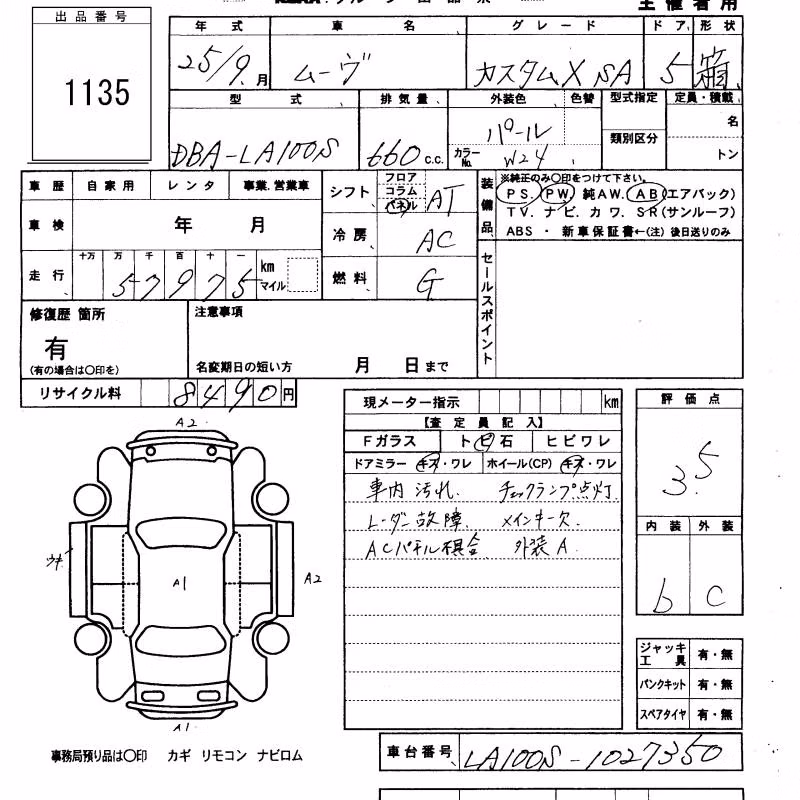 主催者用
出品番号
1135
年式 車名 グレード ドア 形状
25/9 月 ムーヴ カスタムX SA 5 箱
型式 排気量 外装色 色替 型式指定 定員・積載
DBA-LA100S 660 c.c. パール
カラーNo. W24 類別区分 名
トン
車歴 自家用 レンタ 事業、営業車
車検 年 月
走行 十万 万 千 百 十 一 km マイル
57975
シフト フロア コラム パネル AT
冷房 AC
燃料 G
装備品 ※純正のみ〇印をつけて下さい。
PS. PW. 純AW. AB(エアバック)
TV. ナビ. カワ. SR(サンルーフ)
ABS ・ 新車保証書←(注) 後日送りのみ
セールスポイント
修復歴 箇所
有
(有の場合は〇印を)
注意事項
名変期日の短い方 月 日まで
リサイクル料 8490 円
現メーター指示 km
【査定員記入】
Fガラス トビ石 ヒビワレ
ドアミラー キズ・ワレ ホイール(CP) キズ・ワレ
車内汚れ. チェックランプ点灯.
レーダー故障. メインキー欠.
ACパネル具合 外装A.
評価点
3.5
内装 外装
b C
A2
ウキ
A1
A2
A1
ジャッキ工具 有・無
パンクキット 有・無
スペアタイヤ 有・無
事務局預り品は〇印 カギ リモコン ナビロム
車台番号 LA100S-1027350